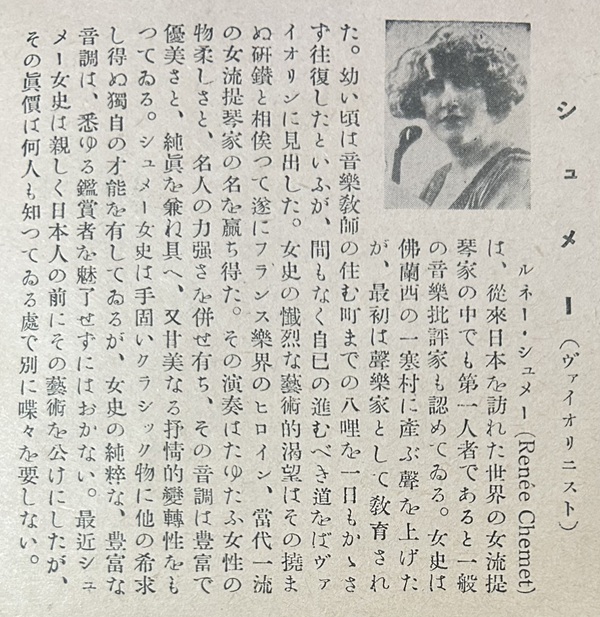 シュメー(ヴァイオリニスト)
ルネー・シュメー(Renée Chemet)
は、從來日本を訪れた世界の女流提
琴家の中でも第一人者であると一般
の音樂批評家も認めてゐる。女史は
佛蘭西の一寒村に產ぶ聲を上げた
が、最初は聲樂家として敎育され
た。幼い頃は音樂敎師の住む町までの八哩を一日もかゝさ
ず往復したといふが、間もなく自己の進むべき道をばヴァ
イオリンに見出した。女史の熾烈な藝術的渴望はその撓ま
ぬ硏鑽と相俟つて遂にフランス樂界のヒロイン、當代一流
の女流提琴家の名を贏ち得た。その演奏はたゆたふ女性の
物柔しさと、名人の力强さを併せ有ち、その音調は豊富で
優美さと、純眞を兼ね具へ、又甘美なる抒情的變轉性をも
つてゐる。シュメー女史は手固いクラシック物に他の希求
し得ぬ獨自の才能を有してゐるが、女史の純粹な、豊富な
音調は、悉ゆる鑑賞者を魅了せずにはおかない。最近シュ
メー女史は親しく日本人の前にその藝術を公けにしたが、
その眞價は何人も知つてゐる處で別に喋々を要しない。